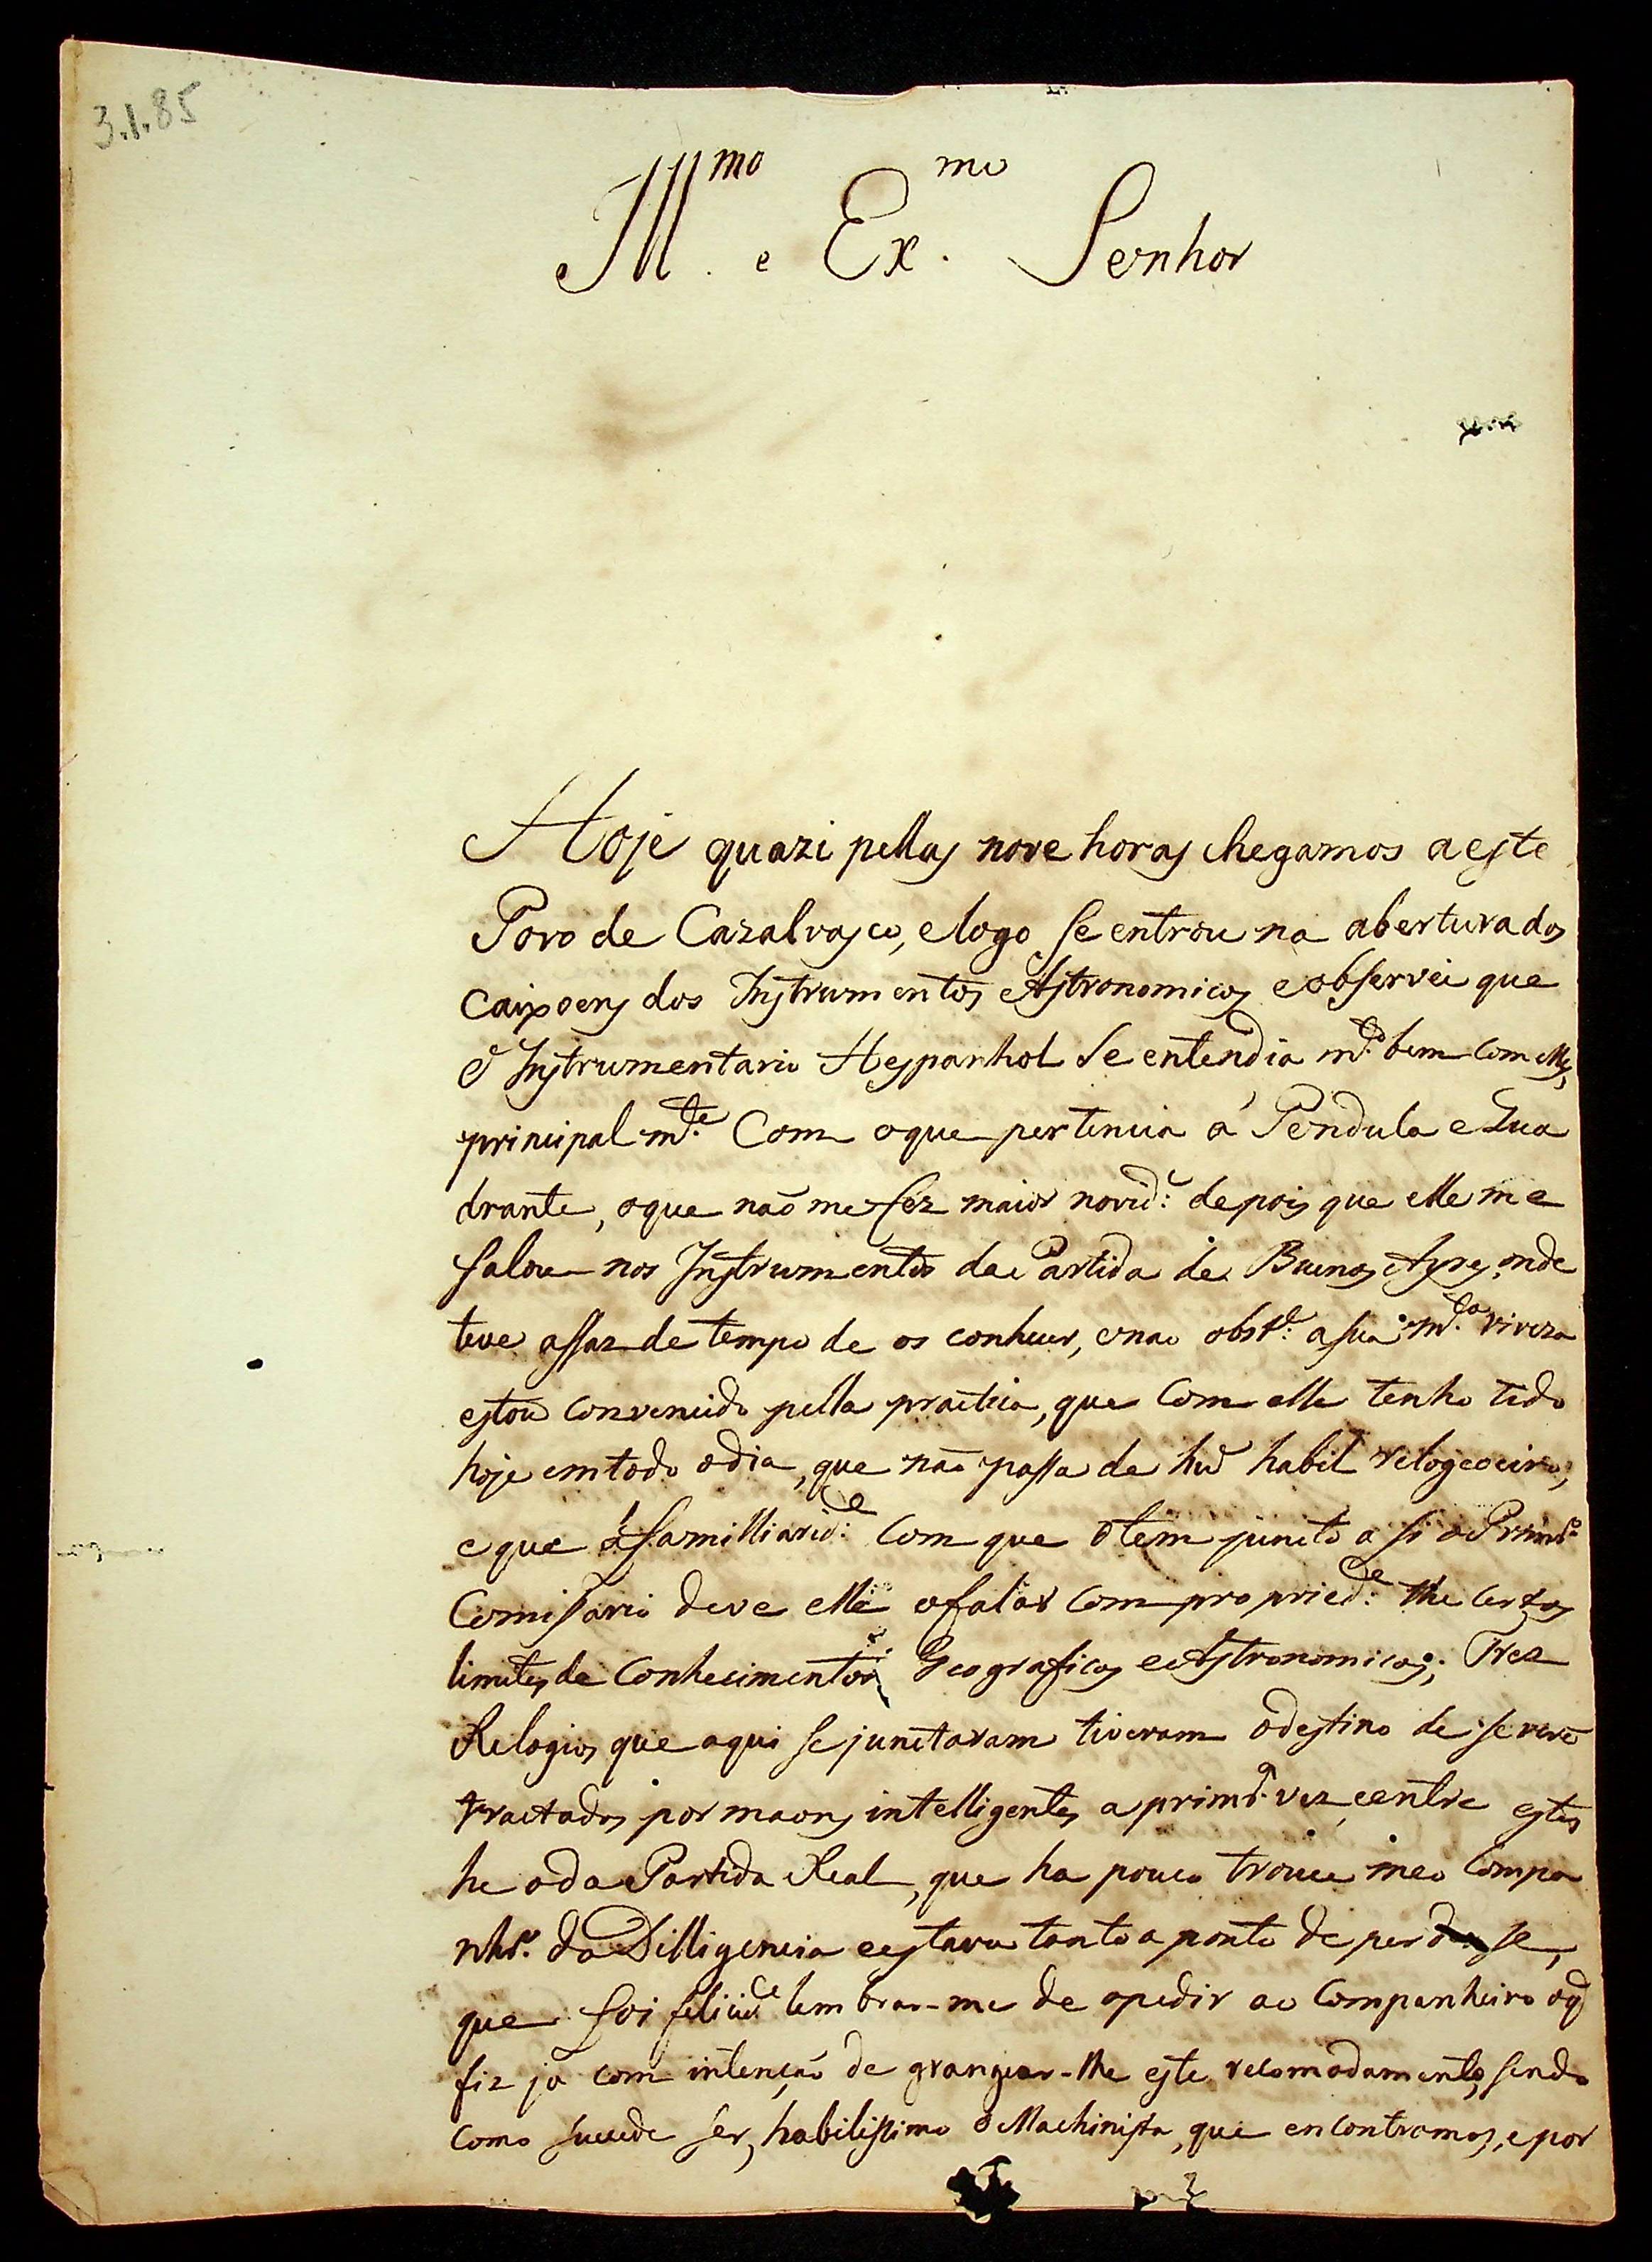 3.1.85
Ill.mo e Ex.mo Senhor
Hoje quazi pellas nove horas chegamos a este
Povo de Cazalvasco, e logo se entrou na abertura dos
caixoens dos Instrumentos Astronomicos e observei que
o Instrumentario Hespanhol se entendia m.to bem com elles,
principalm.te Com o que pertencia á Pendula e Qua
drante, o que naõ me fez maior novid.e depois que elle me
falou nos Instrumentos da Partida de Buenos Ayres, onde
teve assaz de tempo de os conhecer, e nao obst.e a sua m.ta viveza
estou convencido pella practica, que Com elle tenho tido
hoje em todo o dia, que naõ passa de hũ habil relogeoeiro,
e que á familliarid.e Com que o tem juncto a si o Prim.ro
Comissario deve elle o falar Com propried.e lhe certos
limites de Conhecimentos Geograficos e Astronomicos; Trez
Relogios que aqui se junctaram tiveram o destino de serem
tractados por maons intelligentes a prim.ra vez, e entre estes
he o da Partida Real, que ha pouco trouce meo Compa
nhr.o da Dilligencia e estava tanto a ponto de perder se,
que foi felicid.e lembrar-me de o pedir ao Companheiro o q̃
fiz já com intençaõ de grangear-lhe este recomodamento, sendo
como sucede ser, habilissimo o Machinista, que encontramos, e por